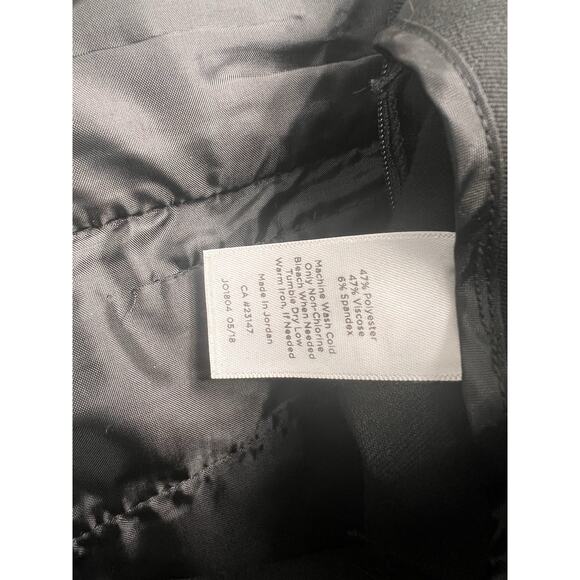 47% Polyester
47% Viscose
6% Spandex
Machine Wash Cold
Only Non-Chlorine
Bleach When Needed
Tumble Dry Low
Warm Iron, If Needed
Made In Jordan
CA #23147
JO1804 05/18